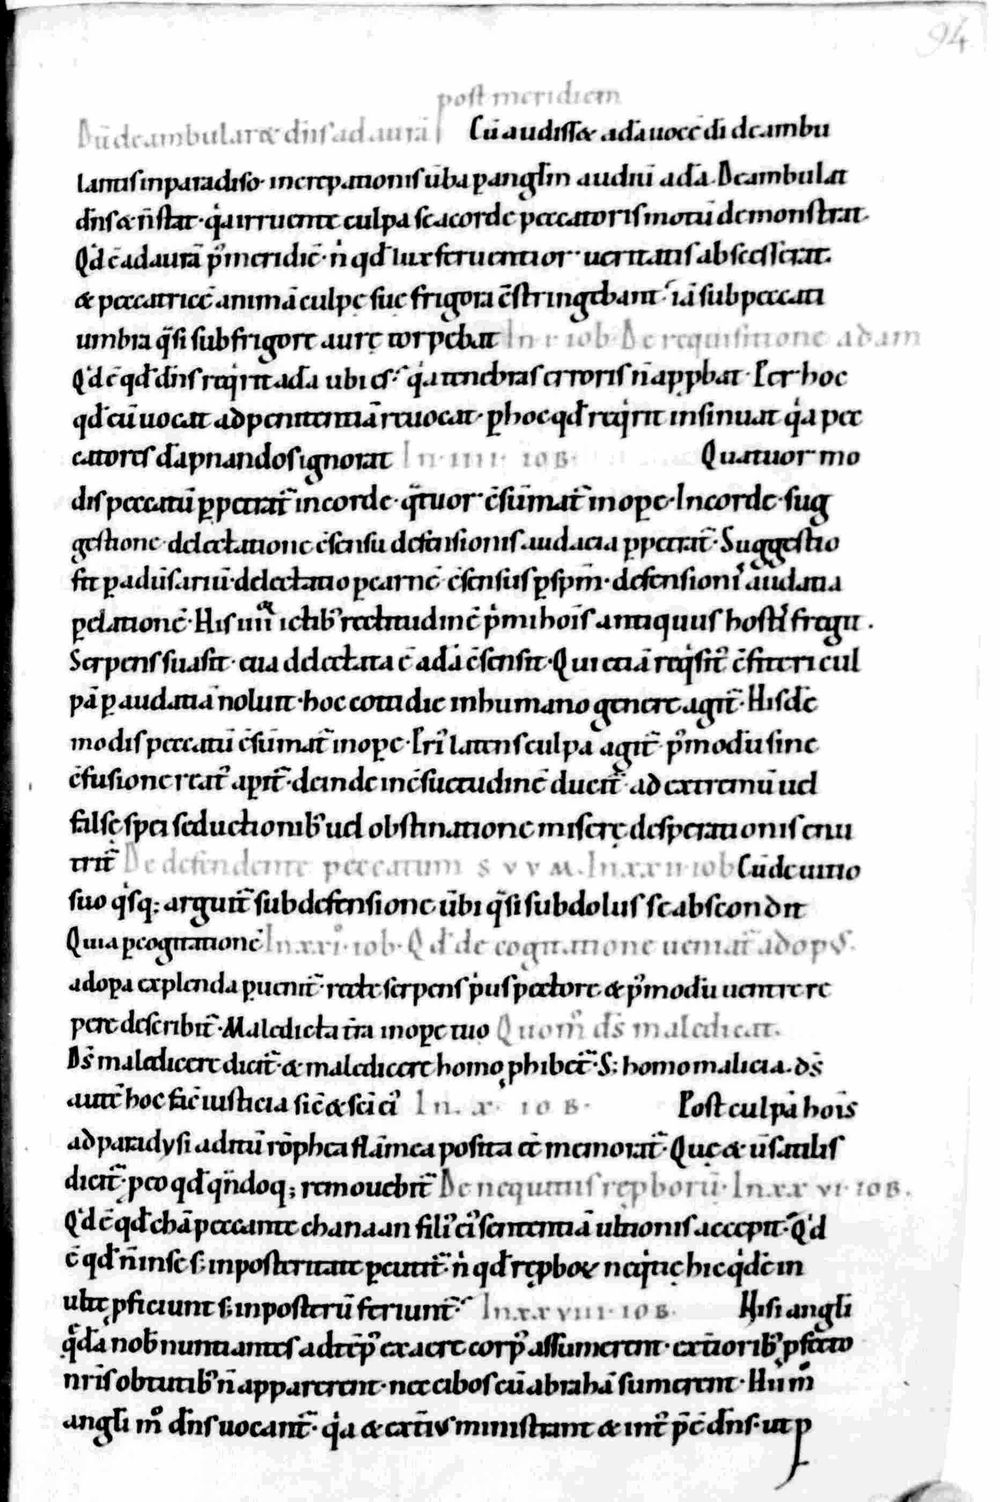 94
post meridiem
Dū deambularet dn̄s ad aurā Cū audisset adā uocē dī deambu
lantis in paradiso· increpationis ūba p anglm̄ audiuī adā. Deambulat
dn̄s & n̄ stat· qͥa irruente culpa se a corde peccatoris motū demonstrat.
Qd̕ ē ad aurā p̕ meridiē· n̕ qd̕ lux feruentior ueritatis abscesserat.
& peccatricē animā culpę suę frigora c̄stringebant· iā sub peccati
umbra qͣsi sub frigore aurę torpebat In · i · iob · De requisitione adam
Qd̕ ē qd̕ dn̄s reqͥrit adā ubi es· qͣa tenebras erroris n̄ appbat· Per hoc
qd̕ eū uocat ad penitentiā reuocat· p hoc qd̕ reqͥrit insinuat qͥa pec
catores dāpnandos ignorat In · iiii · iob · Quatuor mo
dis peccatū ppetrat̄ in corde· qͣtuor c̄sūmat̄ in ope· In corde· sug
gestione· delectatione c̄sensu defensionis audacia ppetrat̄· Suggestio
fit p aduīsariū· delectatio p carnē c̄sensus p spm̄· defensionī audatia
p elationē· His iiii ictibꝰ rectitudinē p̕mi hoīs antiquus hostis fregit.
Serpens suasit· eua delectata ē adā c̄sensit· Qui etiā reqͥsitꝰ c̄fiteri cul
pā p audatiā noluit· hoc cotidie in humano genere agit̄· Hisdē
modis peccatū c̄sūmat̄ in ope· Prī latens culpa agit̄· p̕modū sine
c̄fusione reatꝰ aperit̄· deinde in c̄suetudinē ducit̄· ad extremū uel
falsę spei seductionibꝰ uel obstinatione miserę desperationis enu
trit̄ De defendente peccatum suum. In xxii iob Cū de uitio
suo qͥsq; arguit̄ sub defensione ūbi qͣsi sub dolus se abscondit
Quia p cogitationē In xxi · iob · Qd̕ de cogitatione ueniat̄ ad op̄s.
ad opa explenda puenit̄· recte serpens p̕us pectore & p̕modū uentre re
pere describit̄· Maledicta t̄ra in ope tuo Quom̊ ds̄ maledicat.
Ds̄ maledicere dicit̄· & maledicere homo phibet̄· S; homo malicia· ds̄
autē hoc facit iusticia sic̄ & sci ei In · x · iob · Post culpā hoīs
ad paradysi aditū rōphea flāmea posita eē memorat̄· Quę & ūsatilis
dicit̄· p eo qd̕ qn̄doq; remouebit̄ De nequitiis rępborū· In xxvi · iob ·
Qd̕ ē qd̕ chā peccante chanaan filiꝰ eiꝰ sententiā ultionis accepit· Qd
ē qd̕ n̄ in se s; in posteritate pcutit̄· n̕ qd̕ rępboꝝ neqͥtię hic qͥdē in
ultę pficiunt s; in posterū feriunt̄· In xxviii · iob · Hi si angli
qͥdā nob̄ nuntiantes ad tēpꝰ ex aere corpꝰ assumerent· extiorībꝰ pfecto
nr̄is obtutibꝰ n̄ apparerent· nec cibos cū abrahā sumerent· Hii m̊
angli m̊ dn̄s uocant̄· qͥa & extiꝰ ministrant & intꝰ pē dn̄s· ut p